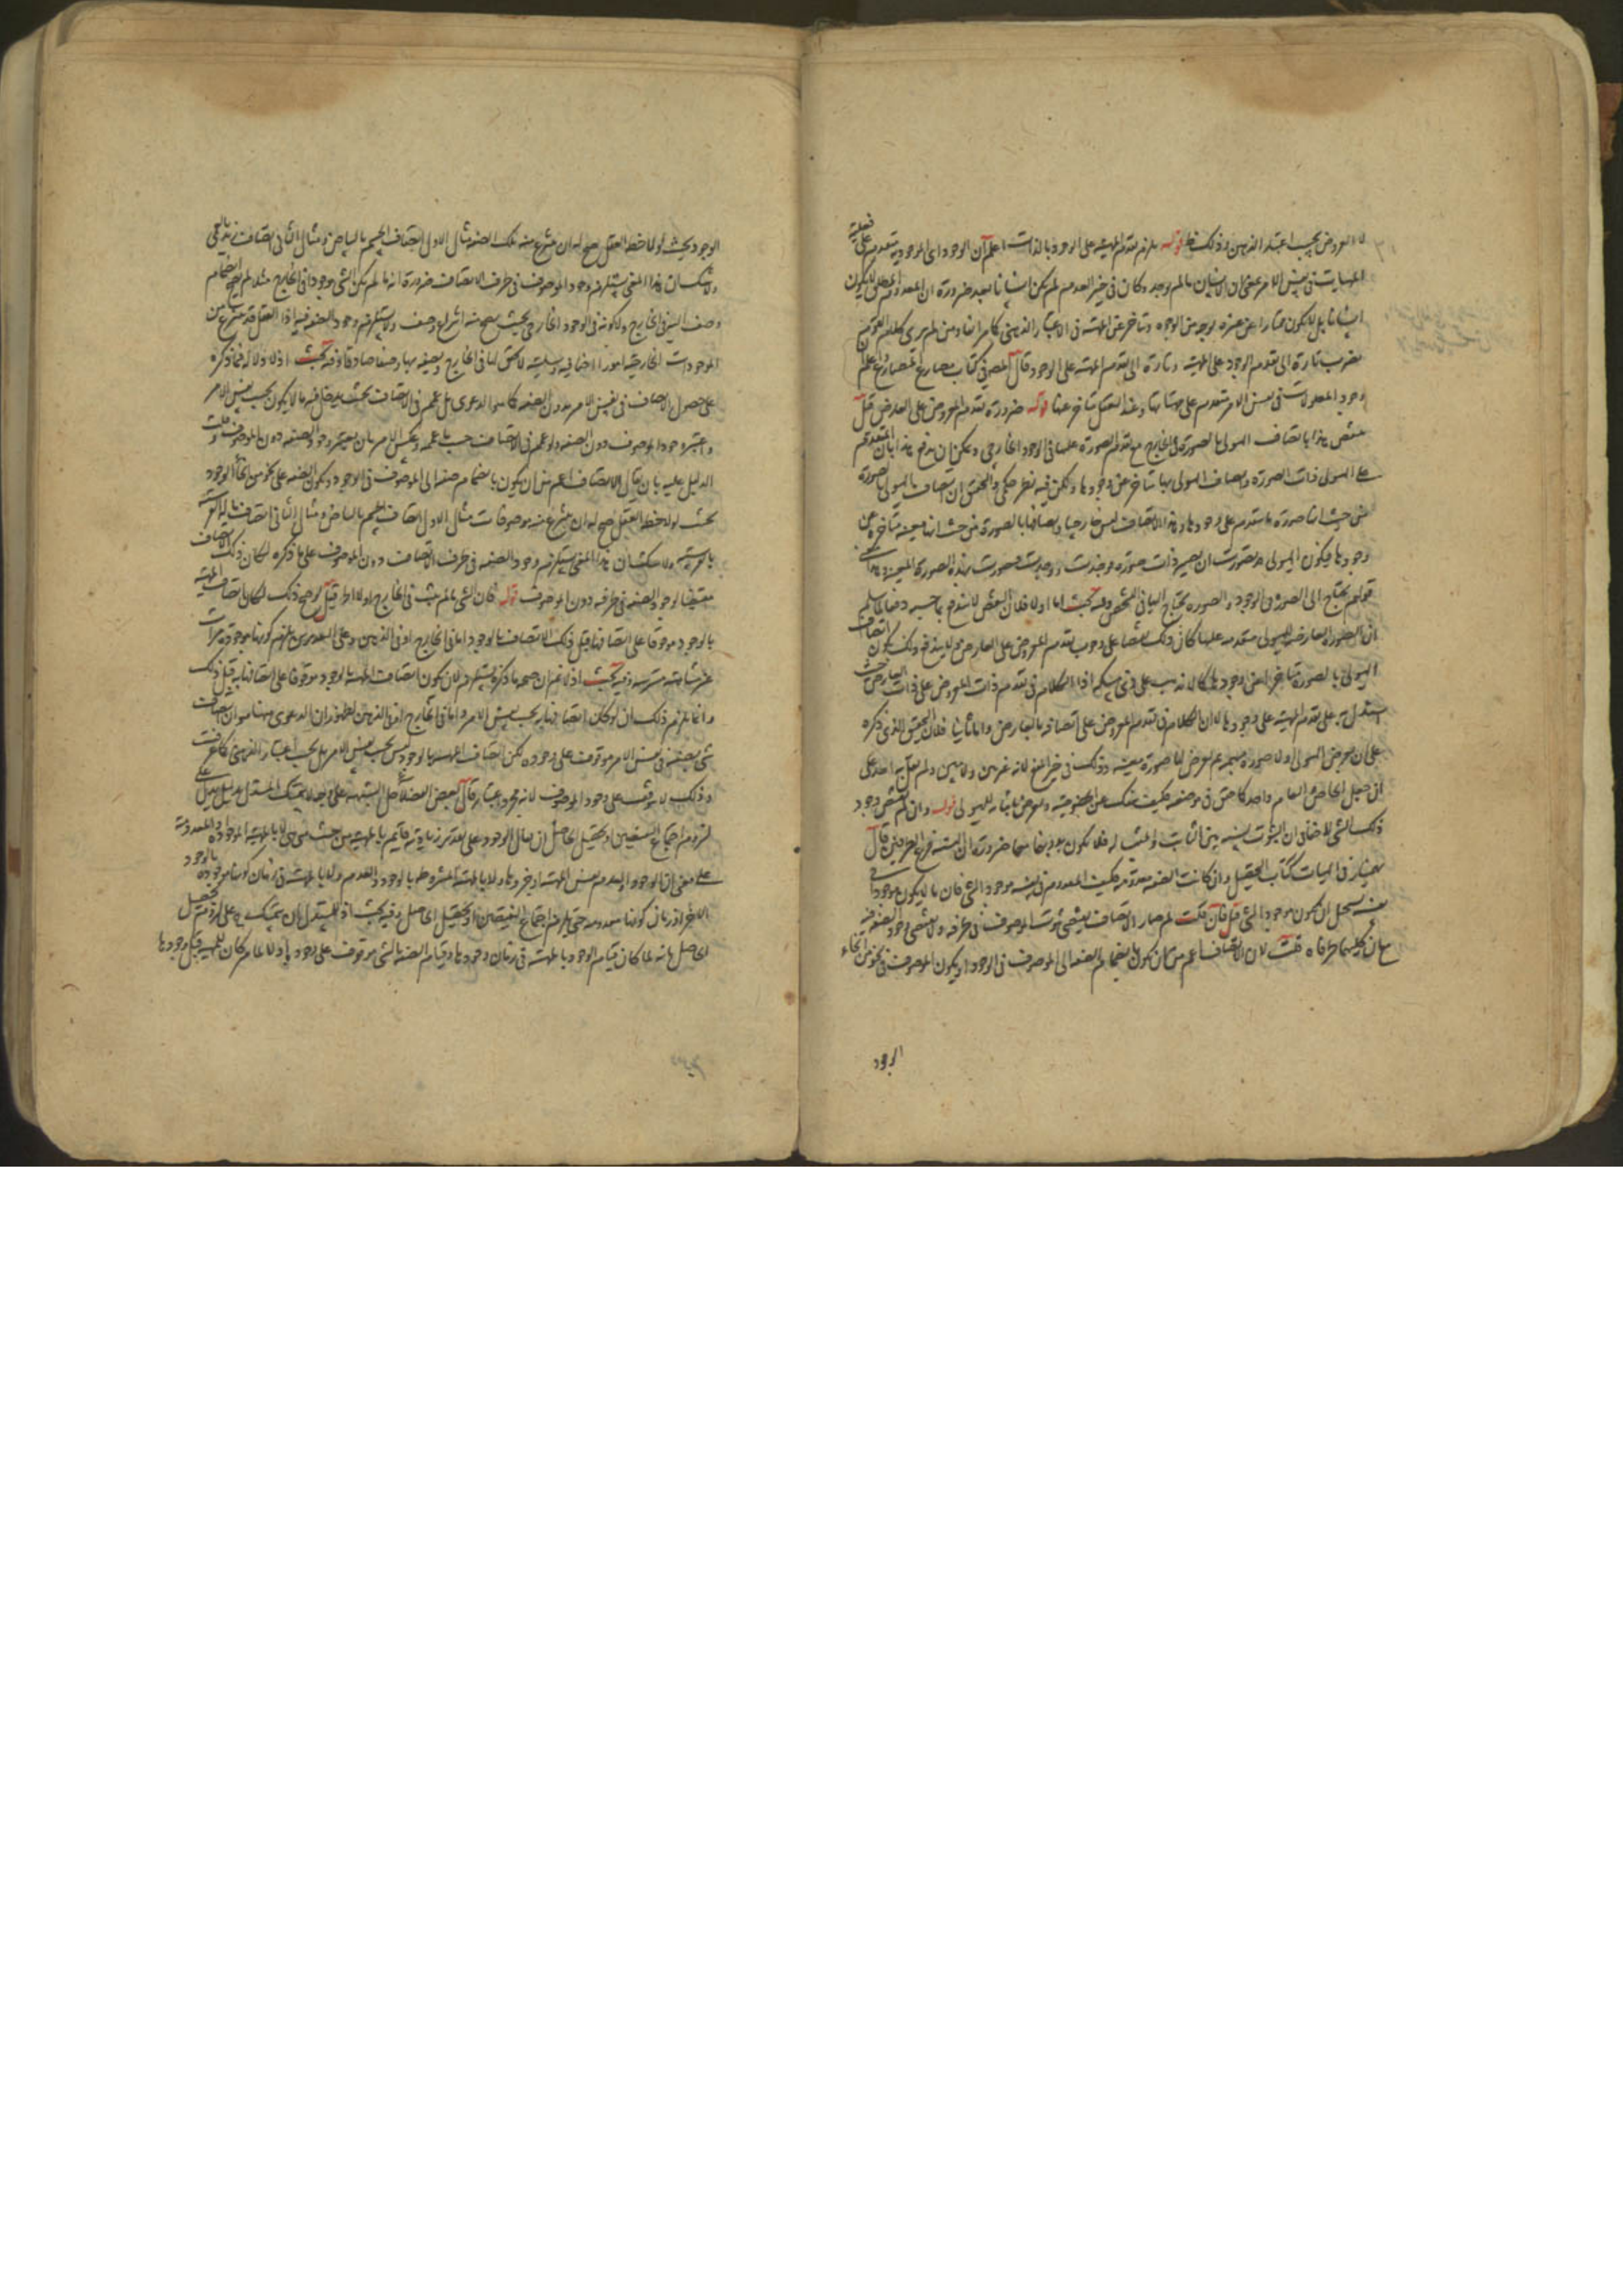 لا العروض بحسب اعتبار الذهن وذلك ظ قوله يلزم تقدم المهية على الوجود بالذات اعلم ان الوجود اى الموجودية متقدم على فعلية
المهيات فى نفس الامر بمعنى ان الانسان ما لم يوجد وكان فى حيز العدم لم يكن انسانا بعد ضرورة ان المعدوم المطلق لا يكون
انسانا بل لا يكون ممتازا عن غيره بوجه من الوجوه ومتاخر عن المهية فى الاعتبار الذهنى كما مر انفا ومن لم ير كلام القوم
تارة الى تقدم الوجود على المهية وتارة الى تقدم المهية على الوجود قال المص فى كتاب مصارع المصارع واعلم
وجود المعلولات فى نفس الامر متقدم على مهياتها وعند العقل متاخر عنها قوله ضرورة تقدم المعروض على العارض قيل
ينتقض هذا باتصاف الهيولى بالصورة فى الخارج مع تقدم الصورة عليها فى الوجود الخارجى ويمكن ان يدفع هذا بان المتقدم
على الهيولى ذات الصورة واتصاف الهيولى بها متاخر عن وجودها ولكن فيه نظر حكمى والتحقيق ان اتصاف الهيولى بالصورة
من حيث انها صورة ما متقدم على وجودها وهذا الاتصاف ليس خارجيا واتصافها بالصورة من حيث انها معينة متاخرة عن
وجودها فيكون الهيولى قد تصورت ان يصير ذات صورة فوجدت ووجدت فتصورت بهذه الصورة المعينة وهذا معنى
قولهم يحتاج الى الصورة فى الوجود والصورة يحتاج اليها فى التشخص وفيه بحث اما اولا فلان النقض لا يندفع بما حسبه دفعا لما سلم
ان الصورة العارضة للهيولى متقدمة عليها كان ذلك نقضا على وجوب تقدم المعروض على العارض ولا يندفع ذلك بكون اتصاف
الهيولى بالصورة متاخرا عن وجودها كما لا يذهب على ذى مسكة اذ الكلام فى تقدم ذات المعروض على ذات العارض حيث
استدل به على تقدم المهية على وجودها لا ان الكلام فى تقدم المعروض على اتصافه بالعارض واما ثانيا فلان التحقيق الذى ذكره
على ان يعرض الهيولى اولا صورة مبهمة ثم يعرض لها صورة معينة وذلك فى حيز المنع لانه غير بين ولا مبين ولم يقل به احد على
ان جعل الخاص العام واحد كما حقق فى موضعه فكيف ينفك عن الخصوصية ويعرض بانفراده للهيولى قوله وان لم يقتض وجود
ذلك الشئ لا خفاء فى ان الثبوت نسبة بين الثابت والمثبت له فلا يكون بدون تحققهما ضرورة ان النسبة فرع الطرفين قال
بهمنيار فى الهيات كتاب التحصيل وان كانت الصفة معدومة فكيف المعدوم فى نفسه موجود الشئ فان ما لا يكون موجودا فى
نفسه يستحيل ان يكون موجودا لشئ فان قلت لم صار الاتصاف يقتضى ثبوت الموصوف فى ظرفه ولا يقتضى وجود الصفة فيه
مع ان كليهما طرفاه قلت لان الاتصاف اعم من ان يكون بانضمام الصفة الى الموصوف فى الوجود او يكون الموصوف فى نحو من انحاء
الوجود
الوجود بحيث لو لاحظه العقل صح له ان ينتزع منه تلك الصفة مثال الاول اتصاف الجسم بالبياض ومثال الثانى اتصاف زيد بالعمى
ولا شك ان هذا المعنى يستلزم وجود الموصوف فى ظرف الاتصاف ضرورة انه ما لم يكن الشئ موجودا فى الخارج مثلا لم يصح انضمام
وصف اليه فى الخارج ولا كونه فى الوجود الخارجى بحيث يصح منه انتزاع وصف ولا يستلزم وجود الصفة فيه اذ العقل قد ينتزع من
الموجودات الخارجية امورا اضافية وسلبية لا تحقق لها فى الخارج ويصفه بها وصفا صادقا وفيه بحث اذ لا دلالة لما ذكره
على حصول الاتصاف فى نفس الامر بدون الصفة كما هو الدعوى بل عمم فى الاتصاف بحيث يدخل فيه ما لا يكون بحسب نفس الامر
واعتبر وجود الموصوف دون الصفة ولو عمم فى الاتصاف حسب ما عممه وعكس الامر بان يعتبر وجود الصفة دون الموصوف وقلت
الدليل عليه بان يقال الاتصاف اعم من ان يكون بانضمام صفة الى الموصوف فى الوجود ويكون الصفة على نحو من انحاء الوجود
بحيث لو لاحظه العقل صح له ان ينتزع منه موصوفات مثال الاول اتصاف الجسم بالبياض ومثال الثانى اتصاف
ولا شك ان هذا المعنى يستلزم وجود الصفة فى ظرف الاتصاف دون الموصوف على ما ذكره لكان ذلك الاتصاف
مقتضيا لوجود الصفة فى ظرفه دون الموصوف قوله فان الشئ ما لم يثبت فى الخارج اولا اه قيل لو صح ذلك لكان اتصاف المهية
بالوجود موقوفا على اتصافها قبل ذلك الاتصاف بالوجود اما فى الخارج او فى الذهن وعلى التقديرين يلزم كونها موجودة مرات
غير متناهية مترتبة وفيه بحث اذ لا نم ان صحة ما ذكره يستلزم لان يكون اتصاف المهية بالوجود موقوفا على اتصافها به قبل ذلك
وانما يلزم ذلك ان لو كان اتصافها به بحسب نفس الامر واما فى الخارج او فى الذهن لظهور ان الدعوى ههنا هو ان اتصاف
شئ بصفة فى نفس الامر موقوف على وجوده لكن اتصاف المهية بالوجود ليس بحسب نفس الامر بل بحسب اعتبار الذهنى كما عرفت
وذلك لا يتوقف على وجود الموصوف لانه مجرد اعتبار قال بعض الفضلاء حل الشبهة على وجه لا يتمسك المستدل بدليل يدل على
لزوم اجتماع النقيضين او تحصيل الحاصل ان يقال الوجود على تقدير زيادته قائم بالمهية من حيث هى هى لا بالمهية الموجودة او المعدومة
على معنى ان الوجود والعدم نفس المهية او جزؤها ولا بالمهية المشروطة بالوجود والعدم ولا بالمهية فى زمان كونها موجودة بالوجود
الاخر او زمان كونها معدومة حتى يلزم اجتماع النقيضين او تحصيل الحاصل وفيه بحث اذ للمستدل ان يتمسك به على لزوم تحصيل
الحاصل بانه لما كان قيام الوجود بالمهية فى زمان وجودها وقيام الصفة بالشئ موقوف على وجوده اولا لما مر كان للمهية قبل وجودها